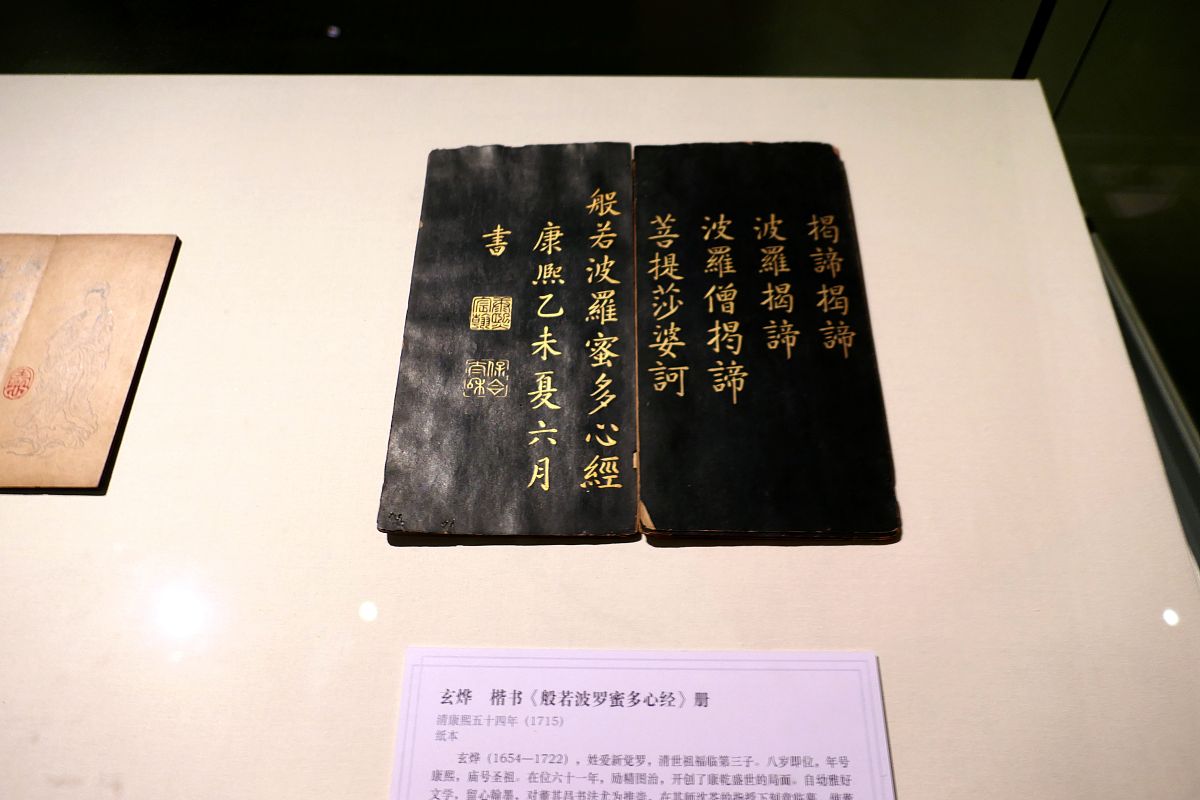 揭諦揭諦
波羅揭諦
波羅僧揭諦
菩提莎婆訶
般若波羅蜜多心經
康熙乙未夏六月
書
康熙宸翰
保合太和
玄烨 楷书《般若波罗蜜多心经》册
清康熙五十四年（1715）
纸本
玄烨（1654—1722），姓爱新觉罗，清世祖福临第三子。八岁即位，年号
康熙，庙号圣祖。在位六十一年，励精图治，开创了康乾盛世的局面。自幼雅好
文学，留心翰墨，对董其昌书法尤为推崇，在其师沈荃的指授下刻意临摹